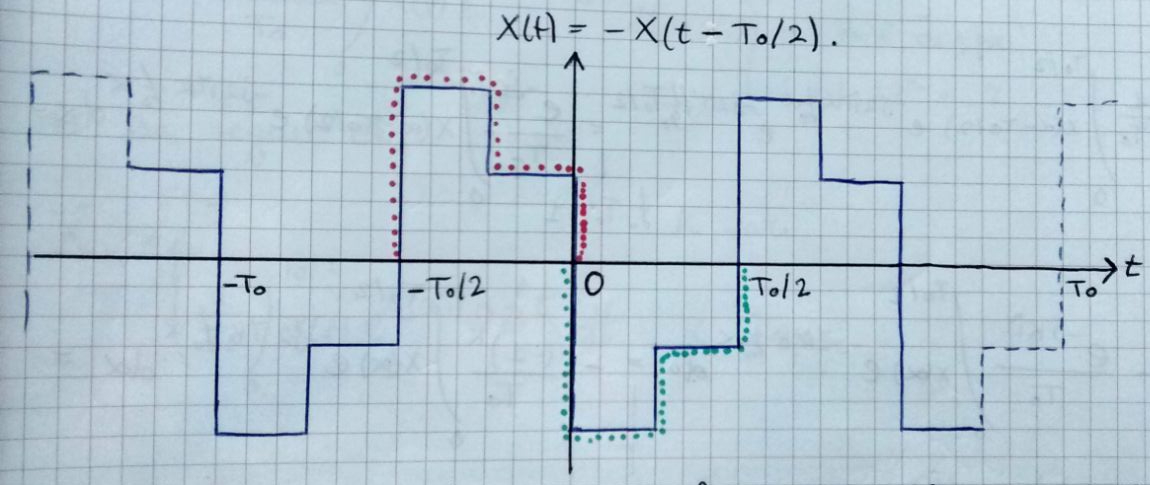 X(t) = - X(t - T₀/2).
-T₀ -T₀/2 0 T₀/2 T₀ t